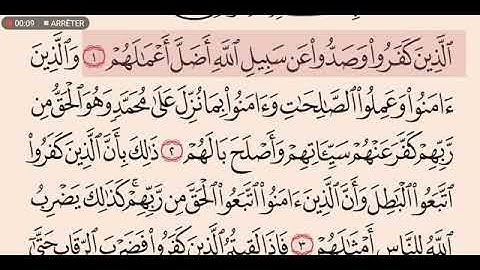 00:09 ARRÊTER
ٱلَّذِينَ كَفَرُوا۟ وَصَدُّوا۟ عَن سَبِيلِ ٱللَّهِ أَضَلَّ أَعْمَـٰلَهُمْ ١ وَٱلَّذِينَ
ءَامَنُوا۟ وَعَمِلُوا۟ ٱلصَّـٰلِحَـٰتِ وَءَامَنُوا۟ بِمَا نُزِّلَ عَلَىٰ مُحَمَّدٍ وَهُوَ ٱلْحَقُّ مِن
رَّبِّهِمْ كَفَّرَ عَنْهُمْ سَيِّـَٔاتِهِمْ وَأَصْلَحَ بَالَهُمْ ٢ ذَٰلِكَ بِأَنَّ ٱلَّذِينَ كَفَرُوا۟
ٱتَّبَعُوا۟ ٱلْبَـٰطِلَ وَأَنَّ ٱلَّذِينَ ءَامَنُوا۟ ٱتَّبَعُوا۟ ٱلْحَقَّ مِن رَّبِّهِمْ ۚ كَذَٰلِكَ يَضْرِبُ
ٱللَّهُ لِلنَّاسِ أَمْثَـٰلَهُمْ ٣ فَإِذَا لَقِيتُمُ ٱلَّذِينَ كَفَرُوا۟ فَضَرْبَ ٱلرِّقَابِ حَتَّىٰٓ